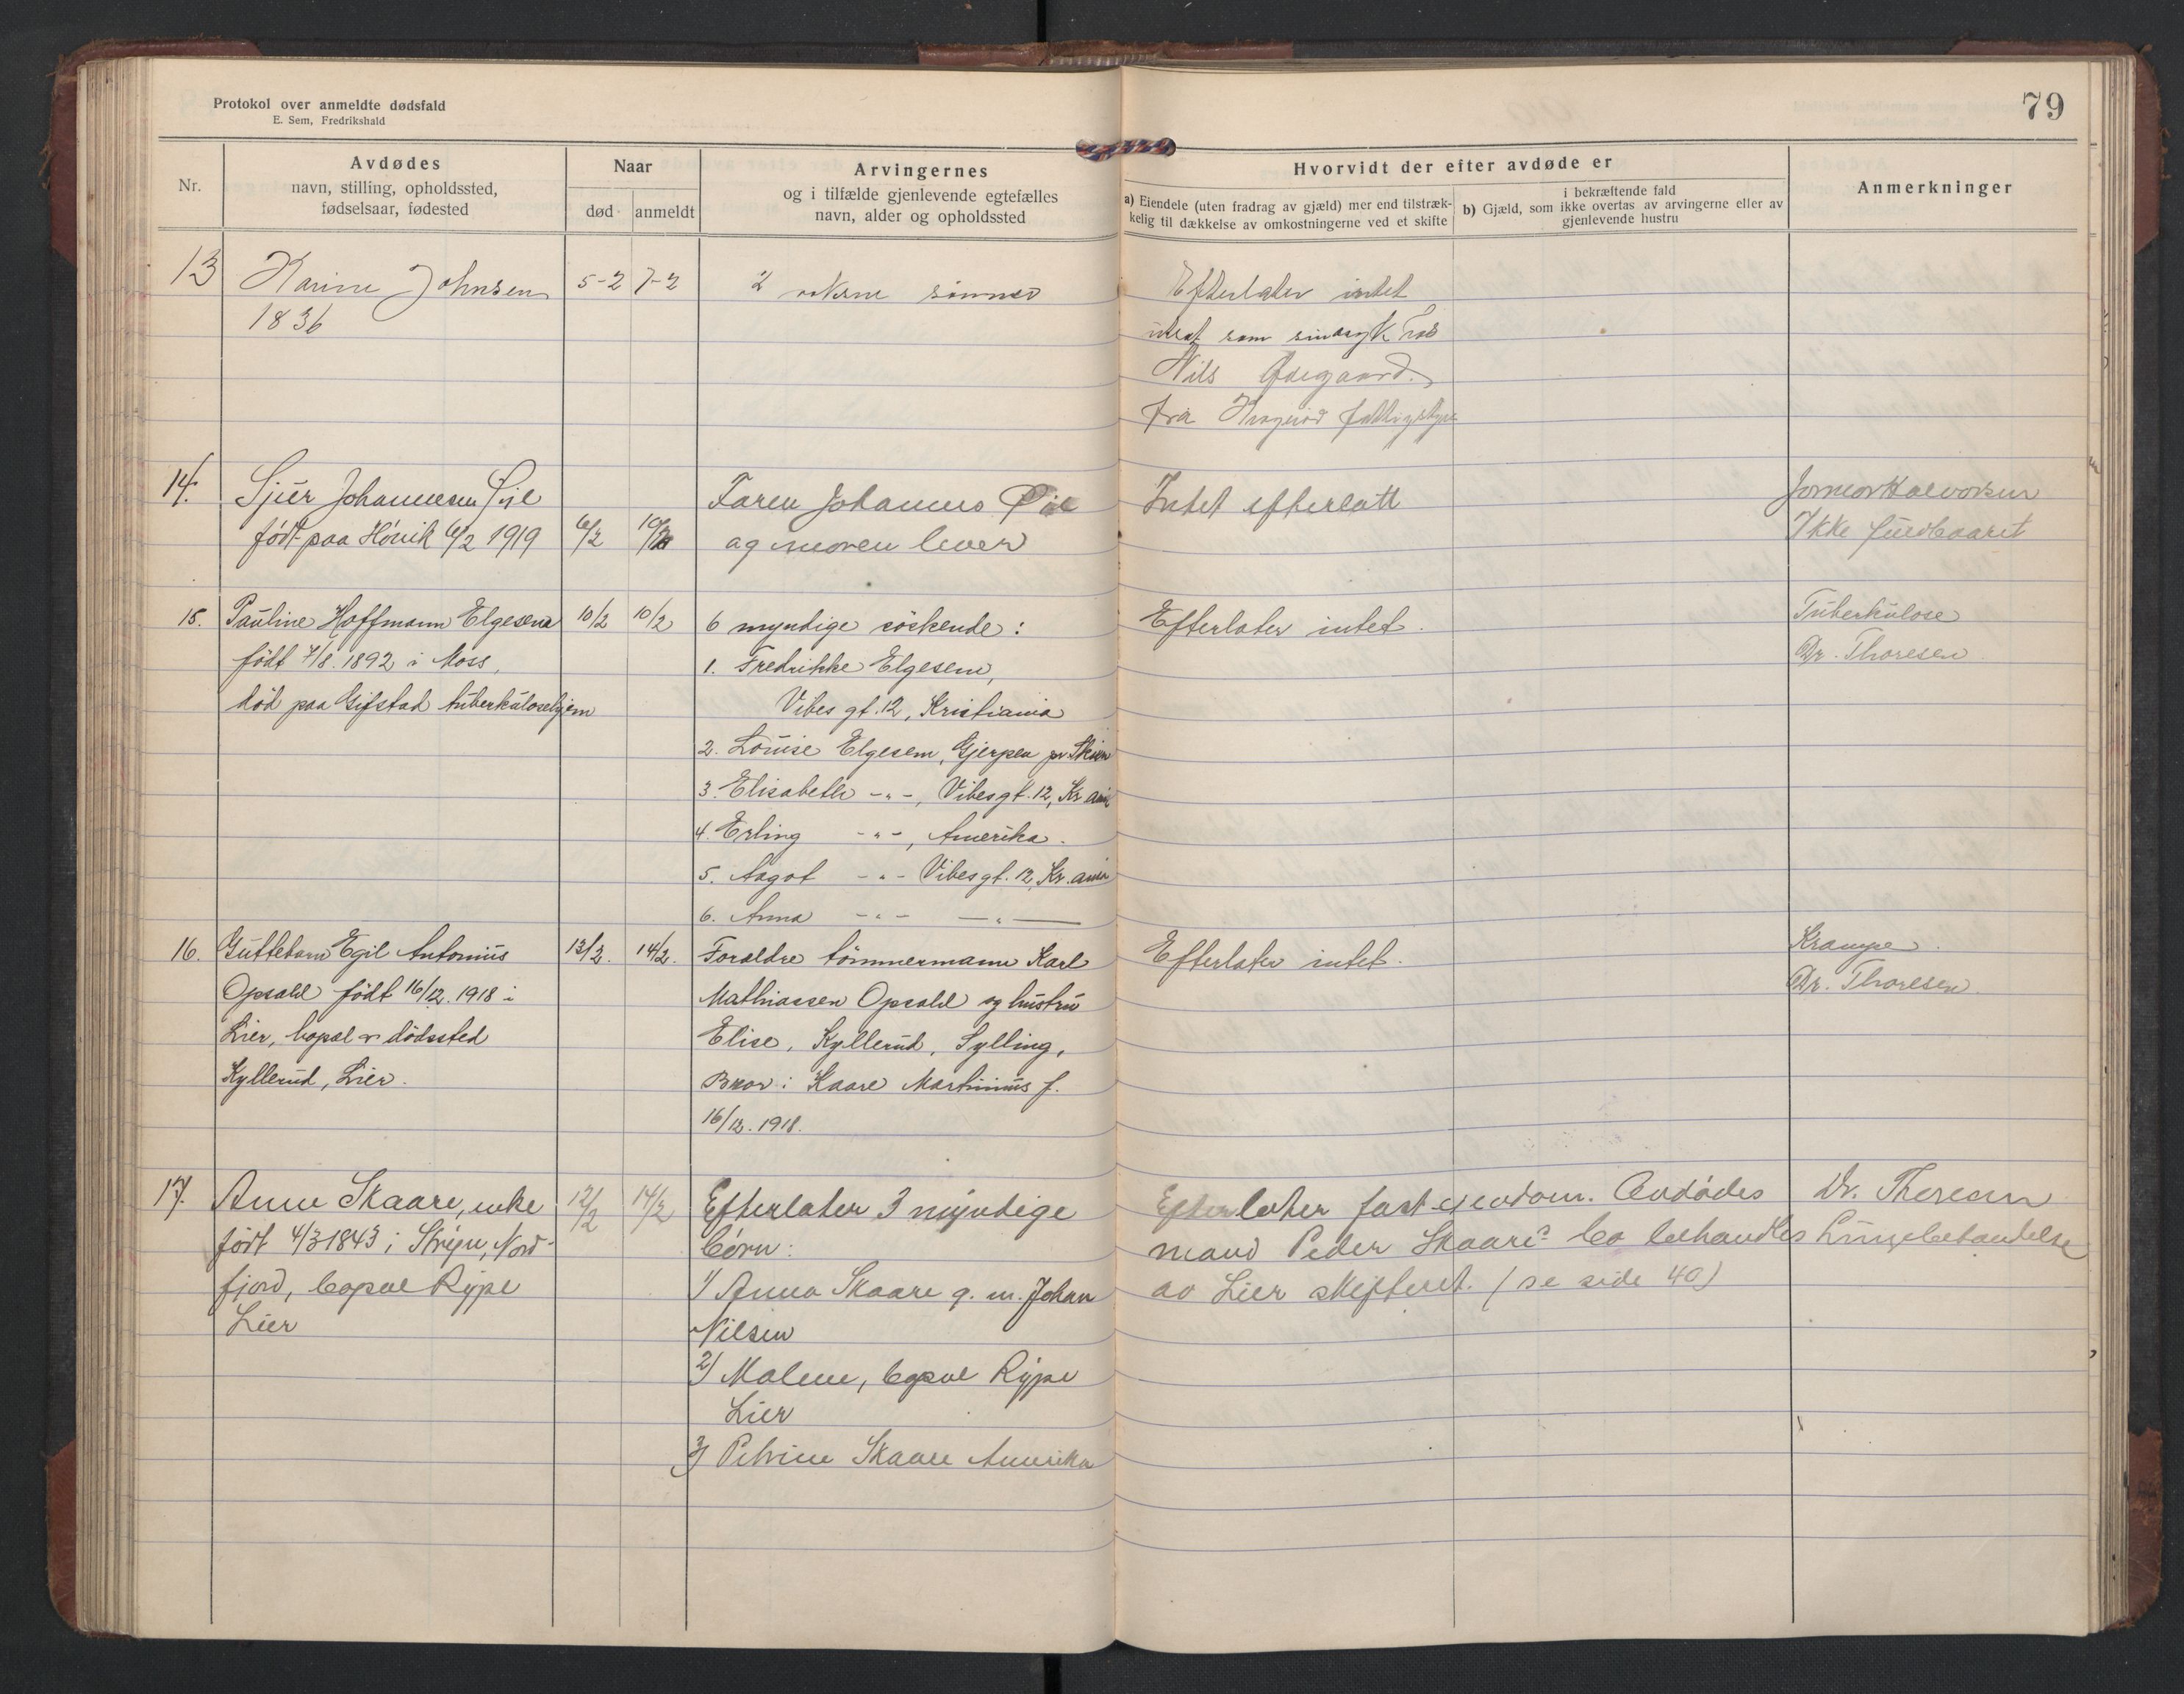 Protokol over anmeldte dødsfald
E. Sem, Fredrikshald
79
Nr.
Avdødes
navn, stilling, opholdssted,
fødselsaar, fødested
Naar
død
anmeldt
Arvingernes
og i tilfælde gjenlevende egtefælles
navn, alder og opholdssted
Hvorvidt der efter avdøde er
a) Eiendele (uten fradrag av gjæld) mer end tilstræk-
kelig til dækkelse av omkostningerne ved et skifte
i bekræftende fald
b) Gjæld, som ikke overtas av arvingerne eller av
gjenlevende hustru
Anmerkninger
13 Karine Johnsen 5-2 7-2 2 voksne sönner Efterlater intet
1836
utsat som sindssyk hos
Nils Ødegaard.
fra
14. Sjur Johannesen 
født paa Hönik 6/2 1919 6/2 10/2
Faren Johannes
og moren lever
Intet efterlatt
Jormor Halvorsen
Ikke fuldbaaret
15. Pauline Hoffmann Elgesem 10/2 10/2 6 myndige söskende: Efterlater intet. Tuberkulose
født 7/8. 1892 i Moss, 1. Fredrikke Elgesem, Dr. Thoresen
död paa Gifstad tuberkulosehjem Vibes gt. 12, Kristiania
2. Louise Elgesem, Gjerpen pr. Skien
3. Elisabeth -"-, Vibesgt. 12, Kr.ania
4. Erling -"-, Amerika.
5. Aagot -"- Vibesgt. 12, Kr.ania
6. Anna -"- -"-
16. Guttebarn Egil Antonius 13/2. 14/2. Foraldre tömmermann Karl Efterlater intet. Krampe.
Opsahl født 16/12. 1918 i Mathiassen Opsahl og hustru Dr. Thoresen.
Lier, bopæl & dödssted Elise, Kyllerud, Sylling,
Kyllerud, Lier. Bror: Kaare Martinius f.
16/12. 1918.
17. Anne Skaare, enke 12/2 14/2 Efterlater 3 myndige Efterlater fast eiendom. Avdödes Dr. Thoresen
født 4/3 1843 i Stryn, Nord- börn: mand Peder Skaares bo behandles Lungebetændelse
fjord, bopæl Rype 1) Anna Skaare g. m. Johan av Lier skifteret. (se side 40)
Lier Nilsen
2) Malene, bopæl Rype
Lier
3) Petrine Skaare Amerika